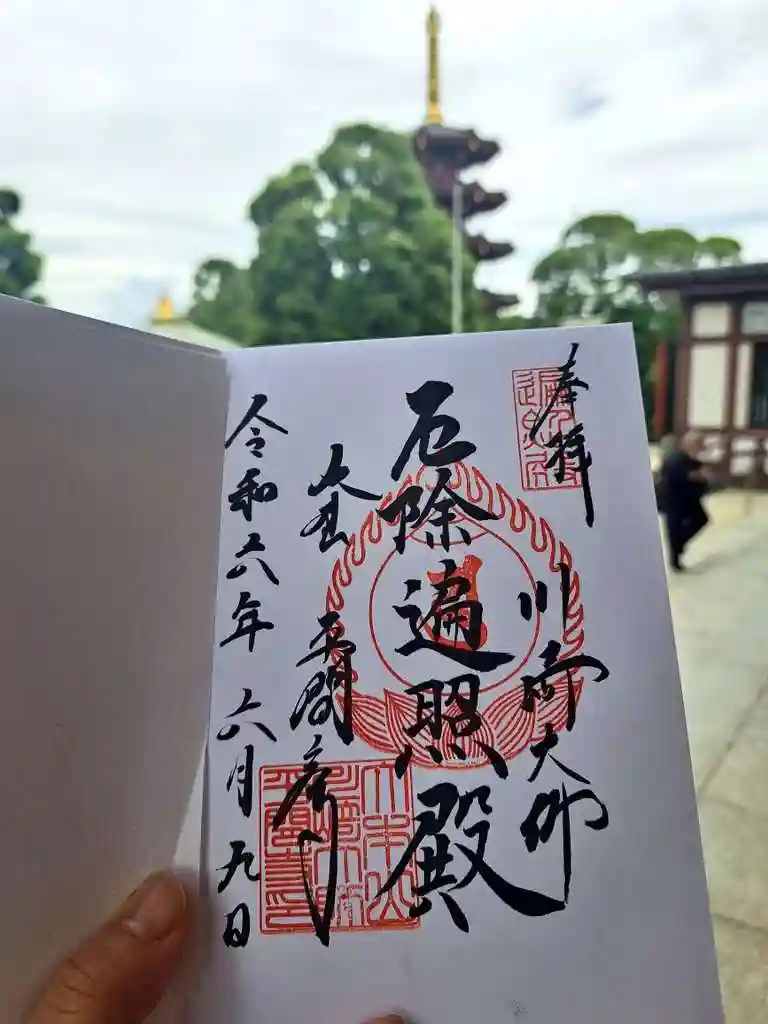 奉拝
川崎大師
厄除遍照殿
大本山
平間寺
令和六年六月九日